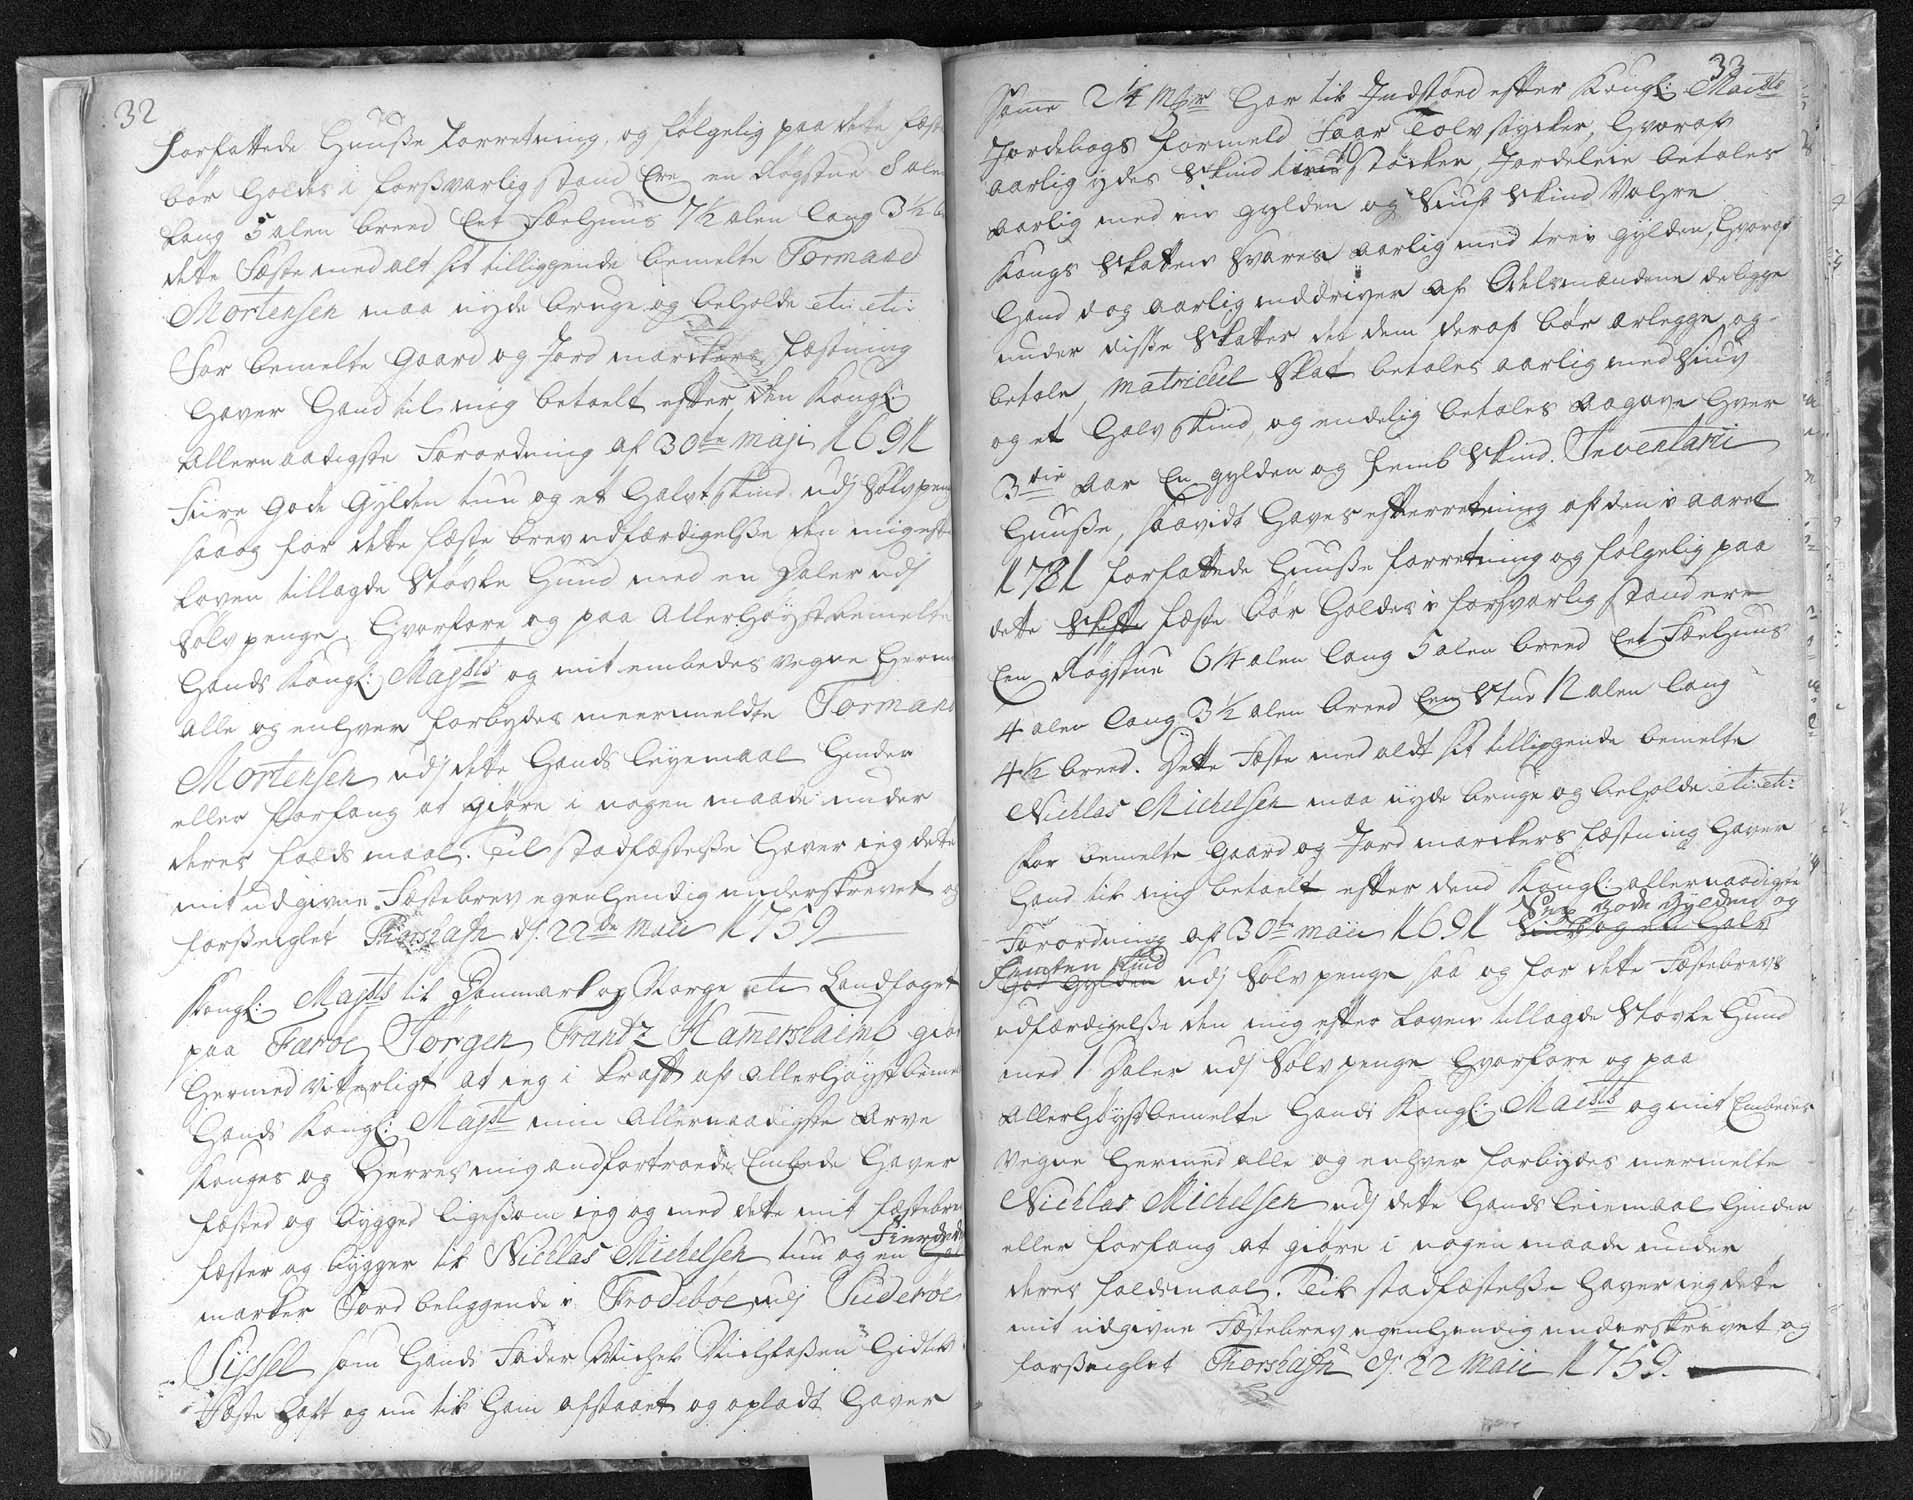 32
forfattede Huuße forretning, og følgelig paa dette fæste
bør holdes i forßvarlig stand Ere en Rogstue 8 alen
lang 5 alen breed Eet Fæehuus 7½ alen lang 3½ br
dette Fæste med alt sit tilliggende bemelte Tormand
Mortensen maa nyde bruge og beholde etc: etc:
For bemelte Gaard og Jord marckers fæstning
haver hand til mig betaelt efter den Kongl:
allernaadigste Forordning af 30te Maji 1691
Fiire gode Gylden tuu og et halvt skind udj Sølvpenge
saa og for dette fæste brev udfærdigelße den mig efter
loven tillagde Støvle Hund med en Daler udj
Sølvpenge. Hvorfore og paa Allerhøystbemelte
Hands Kongl: Maysts og mit embedes vegne herm
alle og enhver forbydes meermeldte Tormand
Mortensen udj dette hands leyemaal hinder
eller forfang at giøre i nogen maade under
deres falds maal. Til stadfæstelße haver ieg dette
mit udgivne Fæstebrev egenhendig underskrevet og
forßeiglet Thorshafn dj. 22de Maii 1759
Kongl: Maysts til Danmark og Norge etc Landfoget
paa Færoe Jørgen Frantz Hamershaimb giør
hermed vitterligt at ieg i kraft af allerhøystbeme
Hands Kongl: Mayst min allernaadigste Arve
Konges og Herres mig andfortroede Embede haver
fæsted og bygged ligeßom ieg og med dette mit fæstebrev
fæster og bygger til Nichlas Michelsen tuu og en Fierdedeel
marker Jord beliggende i Frodebøe udj Suderøe
Syssel som hands Fader Michel Nichlaßen hidtil i
Fæste haft og nu til ham afstaaet og opladt haver
33
Samme 2¼ Mkr har til Indstoed efter Kongl: Maists
Jordebogs formeld Faar Tolv stycker, hvoraf
aarlig ydes Skind tiuu støcker, Jordeleie betales
aarlig med en gylden og Siuf Skind Vahre
Kongs Skatten svares aarlig med trei gylden, hvoraf
hand dog aarlig inddriver af Odelsmændene deligge
under disse Skatter det dem deraf bør erlegge og
betale, matricul Skat betales aarlig med Siuv
og et halv Skind, og endelig betales Aagave hver
3die Aar En gylden og femb Skind. Inventarii
Huuße, saavidt haves efterretning af den i aaret
1731 forfattede Huuße forretning og følgelig paa
dette Skifte fæste bør holdes i forßvarlig stand ere
Een Rogstue 6¼ alen lang 5 alen breed Eet Fæehuus
4 alen lang 3½ alen breed Een Stue 12 alen lang
4½ breed. Dette Fæste med aldt sit tilliggende bemelte
Nichlas Michelsen maa nyde bruge og beholde etc: etc:
For bemelte Gaard og Jord marckers fæstning haver
hand til mig betaelt efter dend Kongl: allernaadigste
Forordning af 30te Maii 1691 Sex Gode Gylden og
Femten Skind udj Sølvpenge saa og for dette Fæstebrevs
udfærdigelße den mig efter loven tillagde Støvle Hund
med 1 Daler udj Sølvpenge hvorfore og paa
Allerhøystbemelte Hands Kongl: Maists og mit Embedes
vegne hermed alle og enhver forbydes mermelte
Nichlas Michelsen udj dette hands leiemaal hinder
eller forfang at giøre i nogen maade under
deres faldsmaal. Til stadfæstelße haver ieg dette
mit udgivne Fæstebrev egenhendig underskrevet og
forßeiglet Thorshafn dj. 22 Maii 1759.